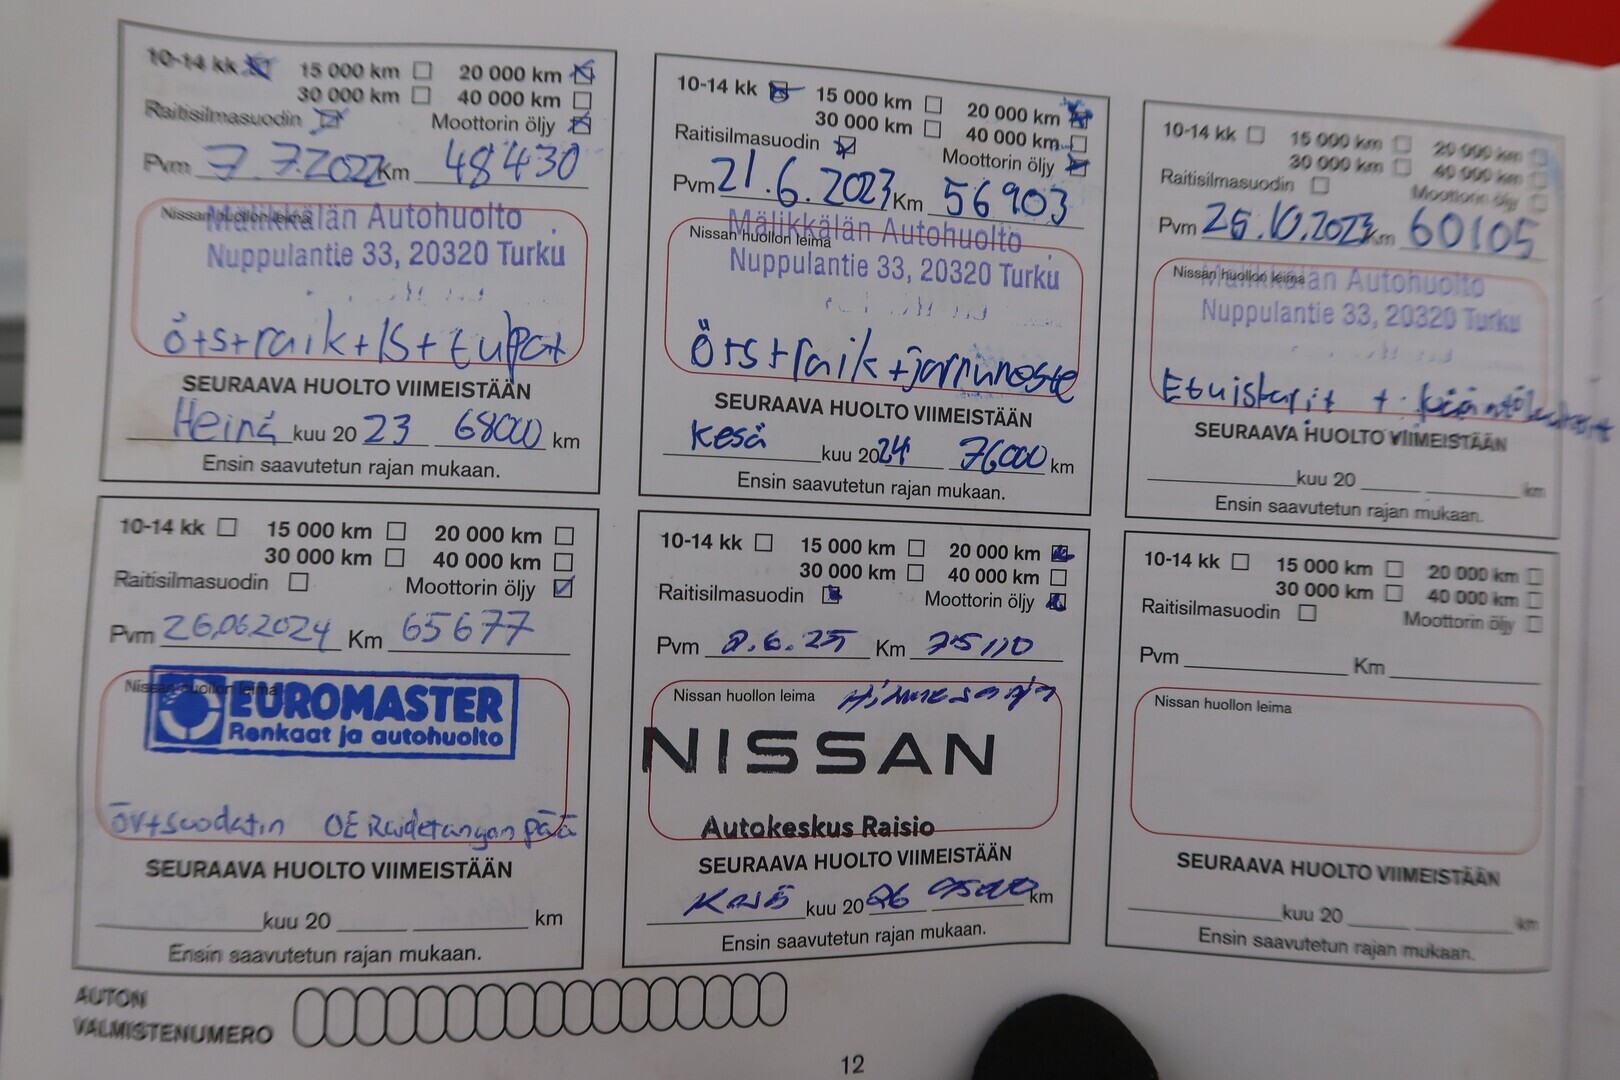 10-14 kk 15 000 km 20 000 km
30 000 km 40 000 km
Raitisilmasuodin Moottorin öljy
Pvm 7.7.2022 Km 48430
Nissan huollon leima
Mälikkälän Autohuolto
Nuppulantie 33, 20320 Turku
ö+s+raik+IS+tulpat
SEURAAVA HUOLTO VIIMEISTÄÄN
Heinä kuu 20 23 68000 km
Ensin saavutetun rajan mukaan.
10-14 kk 15 000 km 20 000 km
30 000 km 40 000 km
Raitisilmasuodin Moottorin öljy
Pvm 21.6.2023 Km 56903
Nissan huollon leima
Mälikkälän Autohuolto
Nuppulantie 33, 20320 Turku
ö+s+raik+jarruneste
SEURAAVA HUOLTO VIIMEISTÄÄN
Kesä kuu 20 24 76000 km
Ensin saavutetun rajan mukaan.
10-14 kk 15 000 km 20 000 km
30 000 km 40 000 km
Raitisilmasuodin Moottorin öljy
Pvm 25.10.2023 Km 60105
Nissan huollon leima
Mälikkälän Autohuolto
Nuppulantie 33, 20320 Turku
Etuiskarit +
SEURAAVA HUOLTO VIIMEISTÄÄN
kuu 20 km
Ensin saavutetun rajan mukaan.
10-14 kk 15 000 km 20 000 km
30 000 km 40 000 km
Raitisilmasuodin Moottorin öljy
Pvm 26.06.2024 Km 65677
Nissan huollon leima
EUROMASTER
Renkaat ja autohuolto
öv+suodatin OE Raidetangon pää
SEURAAVA HUOLTO VIIMEISTÄÄN
kuu 20 km
Ensin saavutetun rajan mukaan.
10-14 kk 15 000 km 20 000 km
30 000 km 40 000 km
Raitisilmasuodin Moottorin öljy
Pvm 2.6.25 Km 75110
Nissan huollon leima
NISSAN
Autokeskus Raisio
SEURAAVA HUOLTO VIIMEISTÄÄN
Kesä kuu 20 26 95000 km
Ensin saavutetun rajan mukaan.
10-14 kk 15 000 km 20 000 km
30 000 km 40 000 km
Raitisilmasuodin Moottorin öljy
Pvm Km
Nissan huollon leima
SEURAAVA HUOLTO VIIMEISTÄÄN
kuu 20 km
Ensin saavutetun rajan mukaan.
AUTON
VALMISTENUMERO
12